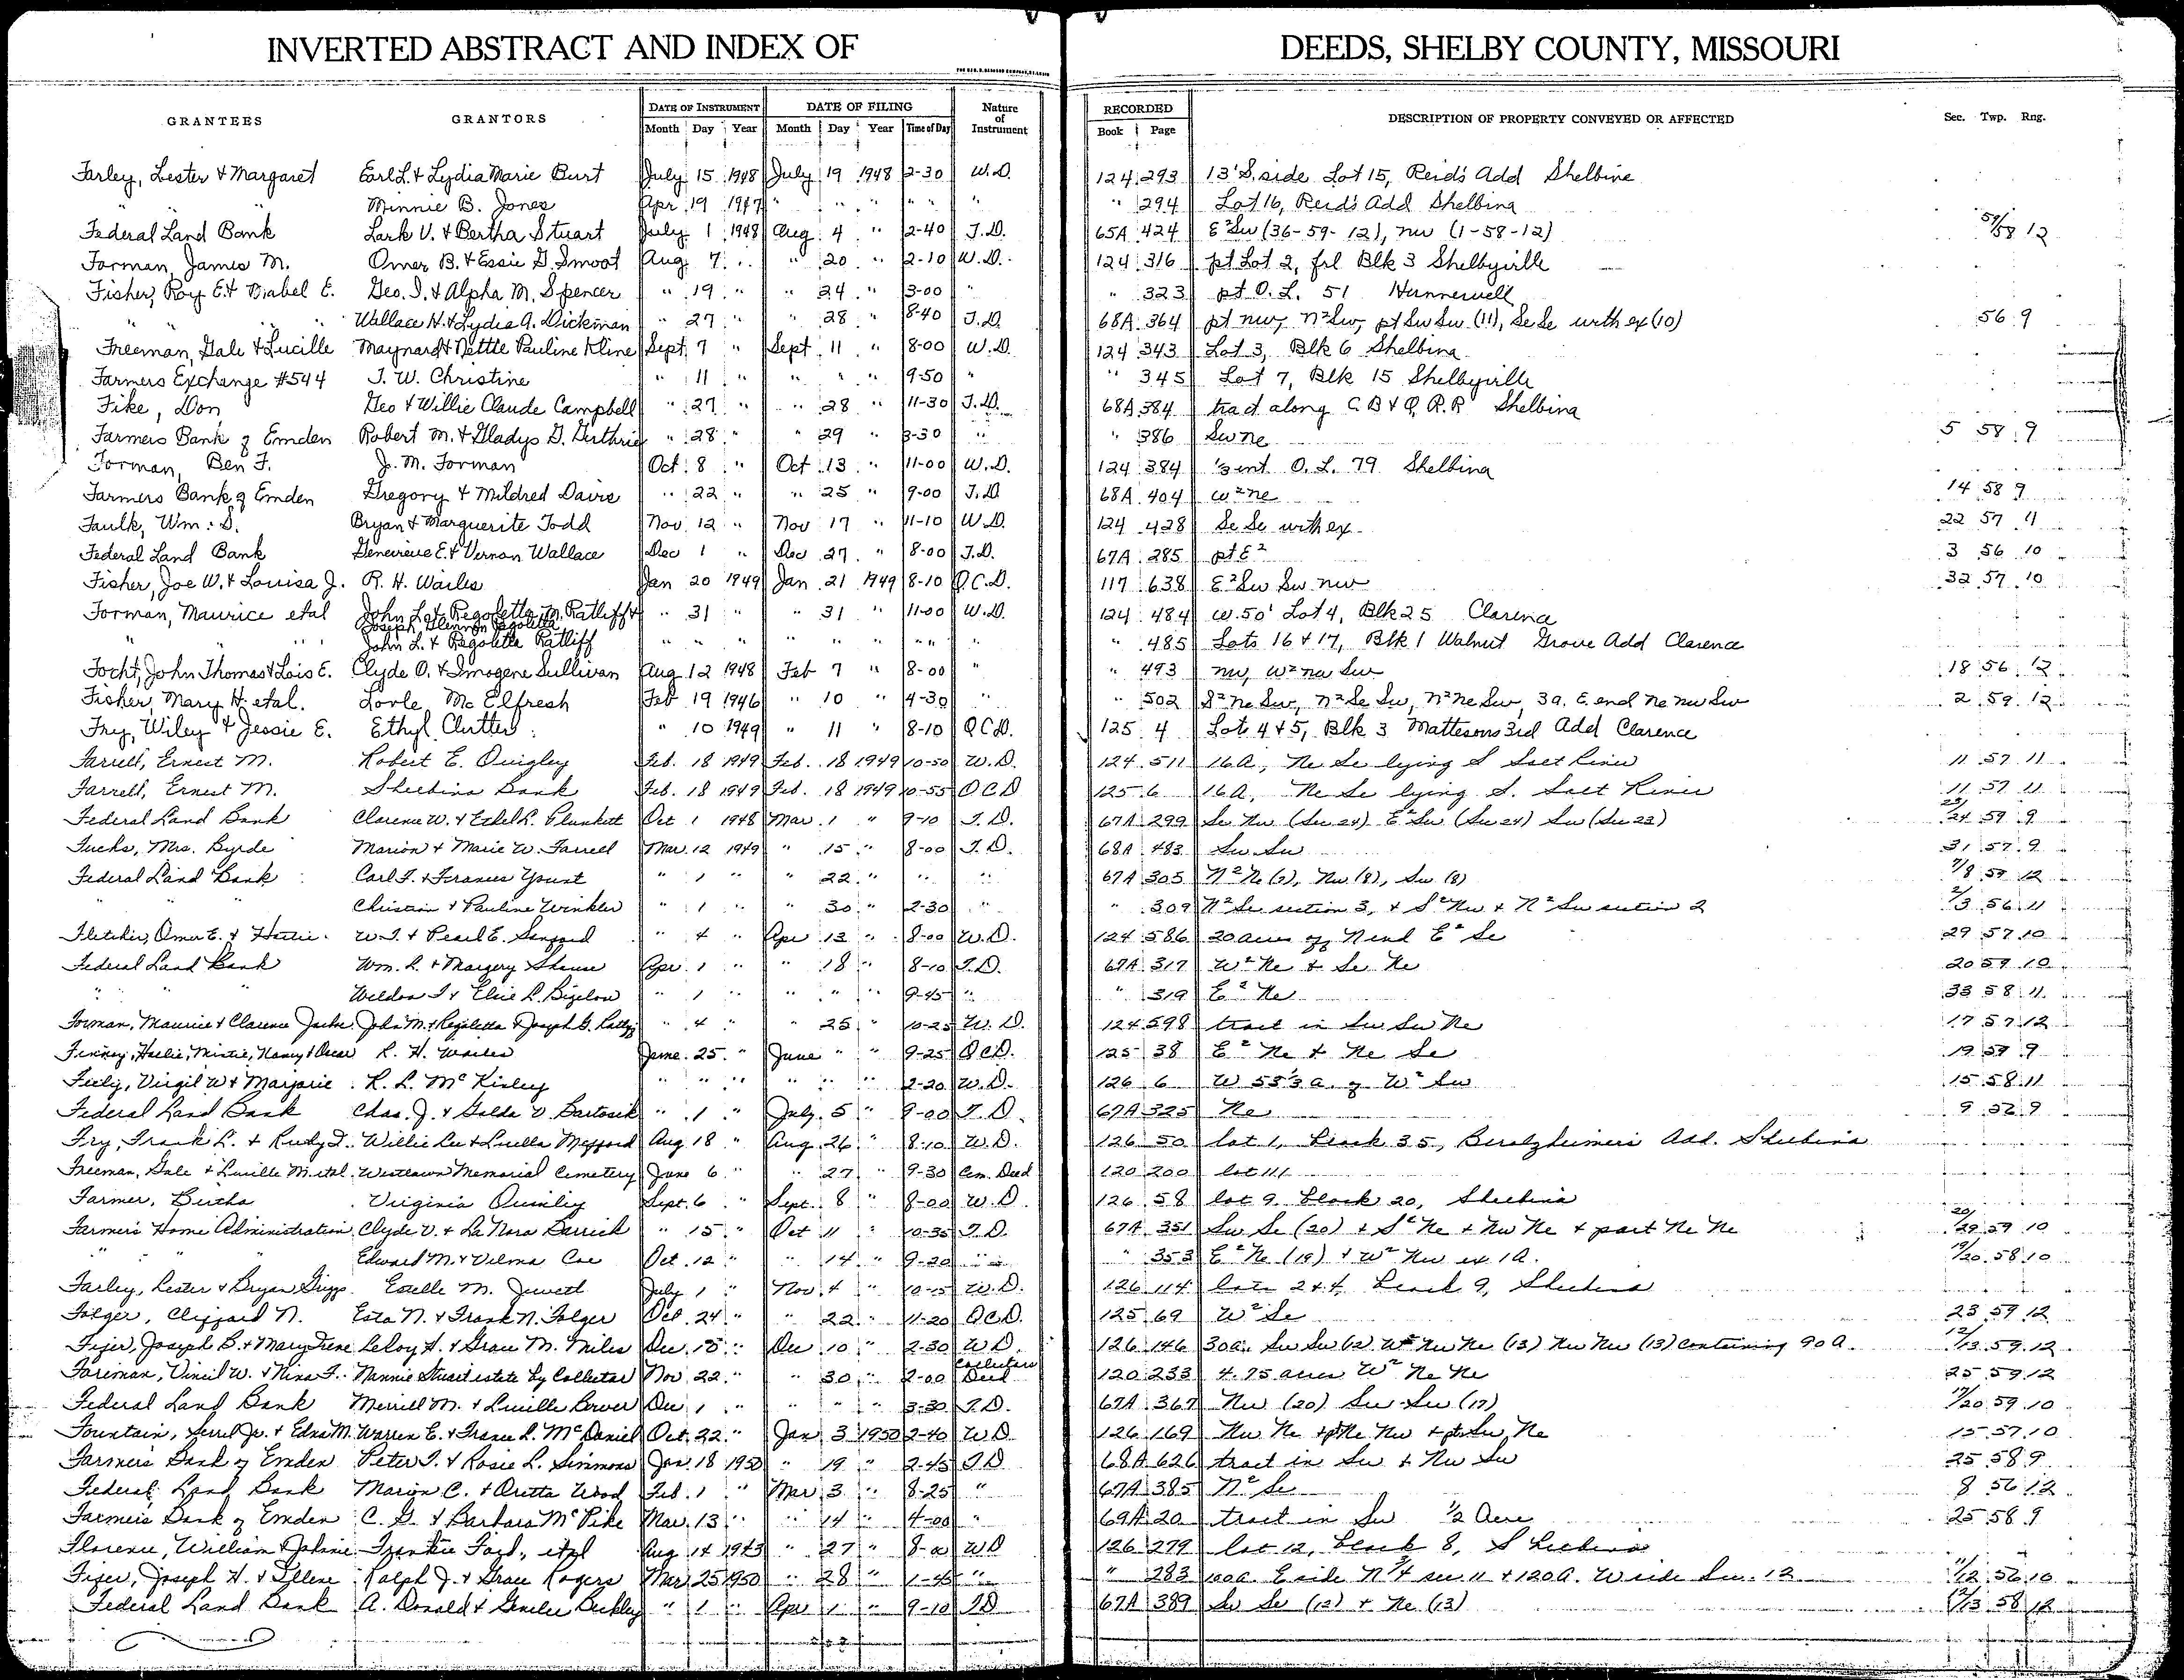 INVERTED ABSTRACT AND INDEX OF DEEDS, SHELBY COUNTY, MISSOURI
GRANTEES GRANTORS DATE OF INSTRUMENT DATE OF FILING Nature of Instrument RECORDED DESCRIPTION OF PROPERTY CONVEYED OR AFFECTED Sec. Twp. Rng.
Month Day Year Month Day Year Time of Day Book Page
Farley, Lester & Margaret Earl L. & Lydia Marie Burt July 15 1948 July 19 1948 2-30 W.D. 124 293 13' S. side Lot 15, Reid's Add Shelbina
" " Minnie B. Jones Apr 19 1947 " " " " " " 294 Lot 16, Reid's Add Shelbina
Federal Land Bank Lark V. & Bertha Stuart July 1 1948 Aug 4 " 2-40 T.D. 65A 424 E² Sw (36-59-12), nw (1-58-12) 59/58 12
Forman, James M. Omer B. & Essie G. Smoot Aug 7 " " 20 " 2-10 W.D. 124 316 pt Lot 2, frl Blk 3 Shelbyville
Fisher, Roy E. & Mabel E. Geo. I. & Alpha M. Spencer " 19 " " 24 " 3-00 " " 323 pt O. L. 51 Hunnewell
" " Wallace H. & Lydia A. Dickman " 27 " " 28 " 8-40 T.D. 68A 364 pt nw, n² Sw, pt Sw Sw (11), Se Se with ex (10) 56 9
Freeman, Gale & Lucille Maynard & Nettie Pauline Kline Sept 7 " Sept 11 " 8-00 W.D. 124 343 Lot 3, Blk 6 Shelbina
Farmers Exchange #544 J. W. Christine " 11 " " " " 9-50 " " 345 Lot 7, Blk 15 Shelbyville
Fike, Don Geo & Willie Claude Campbell " 27 " " 28 " 11-30 T.D. 68A 384 tract along C B & Q R.R Shelbina
Farmers Bank of Emden Robert M. & Gladys G. Guthrie " 28 " " 29 " 3-30 " " 386 Sw ne 5 58 9
Forman, Ben F. J. M. Forman Oct 8 " Oct 13 " 11-00 W.D. 124 384 ⅓ int O. L. 79 Shelbina
Farmers Bank of Emden Gregory & Mildred Davis " 22 " " 25 " 9-00 T.D. 68A 404 w² ne 14 58 9
Faulk, Wm. D. Bryan & Marguerite Todd Nov 12 " Nov 17 " 11-10 W.D. 124 428 Se Se with ex 22 57 11
Federal Land Bank Genevieve E. & Vernon Wallace Dec 1 " Dec 27 " 8-00 T.D. 67A 285 pt E² 3 56 10
Fisher, Joe W. & Louisa J. R. H. Wailes Jan 20 1949 Jan 21 1949 8-10 Q.C.D. 117 638 E² Sw Sw nw 32 57 10
Forman, Maurice etal John L. & Regoletta M. Ratliff & " 31 " " 31 " 11-00 W.D. 124 484 w. 50' Lot 4, Blk 25 Clarence
Joseph Glennon Regoletta
" " John L. & Regoletta Ratliff " " " " " " " " " " 485 Lots 16 & 17, Blk 1 Walnut Grove Add Clarence
Focht, John Thomas & Lois E. Clyde O. & Imogene Sullivan Aug 12 1948 Feb 7 " 8-00 " " 493 nw, w² nw Sw 18 56 12
Fisher, Mary H. etal. Lovle McElfresh Feb 19 1946 " 10 " 4-30 " " 502 S² ne Sw, n² Se Sw, n² ne Sw, 3a. E. end ne nw Sw 2 59 12
Fry, Wiley & Jessie E. Ethyl Clutter " 10 1949 " 11 " 8-10 QCD. 125 4 Lots 4 & 5, Blk 3 Mattesons 3rd Add Clarence
Farrell, Ernest M. Robert E. Quigley Feb. 18 1949 Feb. 18 1949 10-50 W.D. 124 511 16A, Ne Se lying S Salt River 11 57 11
Farrell, Ernest M. Shelbina Bank Feb. 18 1949 Feb. 18 1949 10-55 QCD 125 6 16A, Ne Se lying S. Salt River 11 57 11
Federal Land Bank Clarence W. & Ethel L. Plunkett Oct 1 1948 Mar. 1 " 9-10 T.D. 67A 299 Se Nw (Sec 24) E² Sw (Sec 24) Se (Sec 23) 23/24 59 9
Fuchs, Mrs. Byrde Marion & Marie W. Farrell Mar. 12 1949 " 15 " 8-00 T.D. 68A 483 Sw Sw 31 57 9
Federal Land Bank Carl F. & Frances Yount " 1 " " 22 " " " 67A 305 N² Ne (7), Nw (8), Sw (8) 7/8 57 12
" " Christian & Pauline Winkler " 1 " " 30 " 2-30 " " 309 N² Se section 3, & S² Nw & N² Sw section 2 2/3 56 11
Fletcher, Omer E. & Hattie W. T. & Pearl E. Sanford " 4 " Apr 13 " 8-00 W.D. 124 586 20 acres off N end E² Se 29 57 10
Federal Land Bank Wm. L. & Margery Shouse Apr. 1 " " 18 " 8-10 T.D. 67A 317 W² Ne & Se Ne 20 59 10
" " Weldon I & Elsie L. Bigelow " 1 " " " " 9-45 " " 319 E² Ne 33 58 11
Forman, Maurice & Clarence " 4 " " 25 " 10-25 W.D. 124 598 tract in Sw Sw Ne 17 57 12
Finney, Hallie, Mistie, Nancy & Oscar R. H. Wailes June 25 " June " " 9-25 QCD. 125 38 E² Ne & Ne Se 19 57 9
Feely, Virgil W & Marjorie R. L. McKinley " " " " " " 2-20 W.D. 126 6 W 53⅓ a. of W² Sw 15 58 11
Federal Land Bank Chas. J. & Golda V. Bartosik " 1 " July 5 " 9-00 T.D. 67A 325 Ne 9 9
Fry, Frank L. & Ruby I. Willie Lee & Luella Mefford Aug 18 " Aug. 26 " 8-10 W.D. 126 50 lot 1, block 35, Benizheimers Add. Shelbina
Freeman, Gale & Lucille M. etal Westlawn Memorial Cemetery June 6 " " 27 " 9-30 Cem. Deed 120 200 lot 111
Farmer, Bertha Virginia Quinley Sept. 6 " Sept. 8 " 8-00 W.D. 126 58 lot 9 block 20, Shelbina
Farmers Home Administration Clyde V. & La Nora Derrick " 15 " Oct 11 " 10-35 T.D. 67A 351 Sw Se (20) & S² Ne & Nw Ne & part Ne Ne 20/29 59 10
" " " Edward M. & Velma Coe Oct. 12 " " 14 " 9-20 " " 353 E² Ne (19) & W² Nw ex 1A. 19/20 58 10
Farley, Lester & Bryan Gripp Estelle M. Jewett July 1 " Nov. 4 " 10-15 W.D. 126 114 lots 2 & 4 block 9, Shelbina
Folger, Clifford N. Esta N. & Frank N. Folger Oct. 24 " " 22 " 11-20 QCD. 125 69 W² Se 23 59 12
Fizer, Joseph B. & Mary Irene LeRoy H. & Grace M. Miles Dec 15 " Dec 10 " 2-30 W.D. 126 146 30a. Sw Sw (12) W² Nw Ne (13) Nw Nw (13) containing 90 a. 12/13 59 12
Foreman, Vincil W. & Nina F. Nannie Stuart estate by Collector Nov. 22 " " 30 " 2-00 Collectors Deed 120 233 4.75 acres W² Ne Ne 25 59 12
Federal Land Bank Merrill M. & Lucille Corver Dec 1 " " " " 3-30 T.D. 67A 367 Nw (20) Sw Sw (17) 17/20 59 10
Fountain, Serrel Jr. & Edna M. Warren E. & France L. McDaniel Oct. 22 " Jan 3 1950 2-40 W.D. 126 169 Nw Ne & pt Ne Nw & pt Sw Ne 15 57 10
Farmers Bank of Emden Peter T. & Rosie L. Simmons Jan. 18 1950 " 19 " 2-45 T.D 68A 626 tract in Sw & Nw Sw 25 58 9
Federal Land Bank Marion C. & Oretta Wood Feb. 1 " Mar 3 " 8-25 " 67A 385 N² Se 8 56 12
Farmers Bank of Emden C. G. & Barbara McPike Mar. 13 " " 14 " 4-00 " 69A 20 tract in Sw ½ Acre 25 58 9
Florence, William & Johnie Frankie Ford, etal Aug 14 1943 " 27 " 8-00 WD 126 279 lot 12, block 8, Shelbina
Fizer, Joseph H. & Illene Ralph J. & Grace Rogers Mar 25 1950 " 28 " 1-45 " " 283 100a. E side N¾ sec 11 & 120A. W side Sec. 12 11/12 56 10
Federal Land Bank A. Donald & Genelee Beckley " 1 " Apr 1 " 9-10 T.D 67A 389 Sw Se (12) & Ne (13) 12/13 58 12